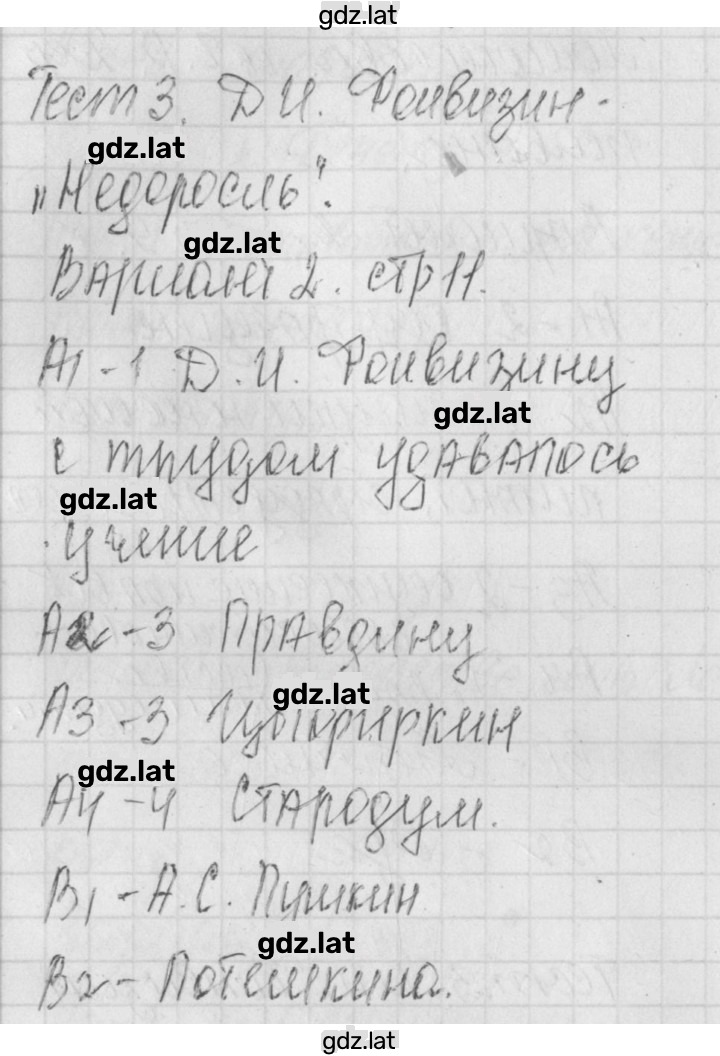 gdz.lat
Тест 3. Д.И. Фонвизин-
gdz.lat
„Недоросль".
gdz.lat
Вариант 2. стр 11.
А1-1 Д.И. Фонвизину
gdz.lat
с трудом удавалось
gdz.lat
учение
А2-3 Правдину
gdz.lat
А3-3 Цыфиркин
gdz.lat
А4-4 Стародум.
В1-А.С. Пушкин
gdz.lat
В2-Потемкина.
gdz.lat